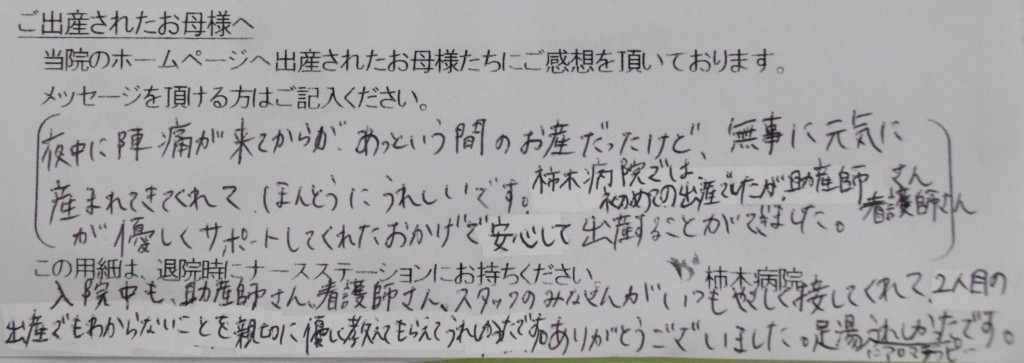 ご出産されたお母様へ
当院のホームページへ出産されたお母様たちにご感想を頂いております。
メッセージを頂ける方はご記入ください。
夜中に陣痛が来てからが、あっという間のお産だったけど、無事に元気に
産まれてきてくれて、ほんとうにうれしいです。柿木病院では
初めての出産でしたが、助産師さん
看護師さん
が優しくサポートしてくれたおかげで安心して出産することができました。
この用細は、退院時にナースステーションにお持ちください。 柿木病院
入院中も、助産師さん、看護師さん、スタッフのみなさんがいつもやさしく接してくれて、2人目の
出産でもわからないことを親切に優しく教えてもらえてうれしかったです。ありがとうございました。足湯うれしかったです。